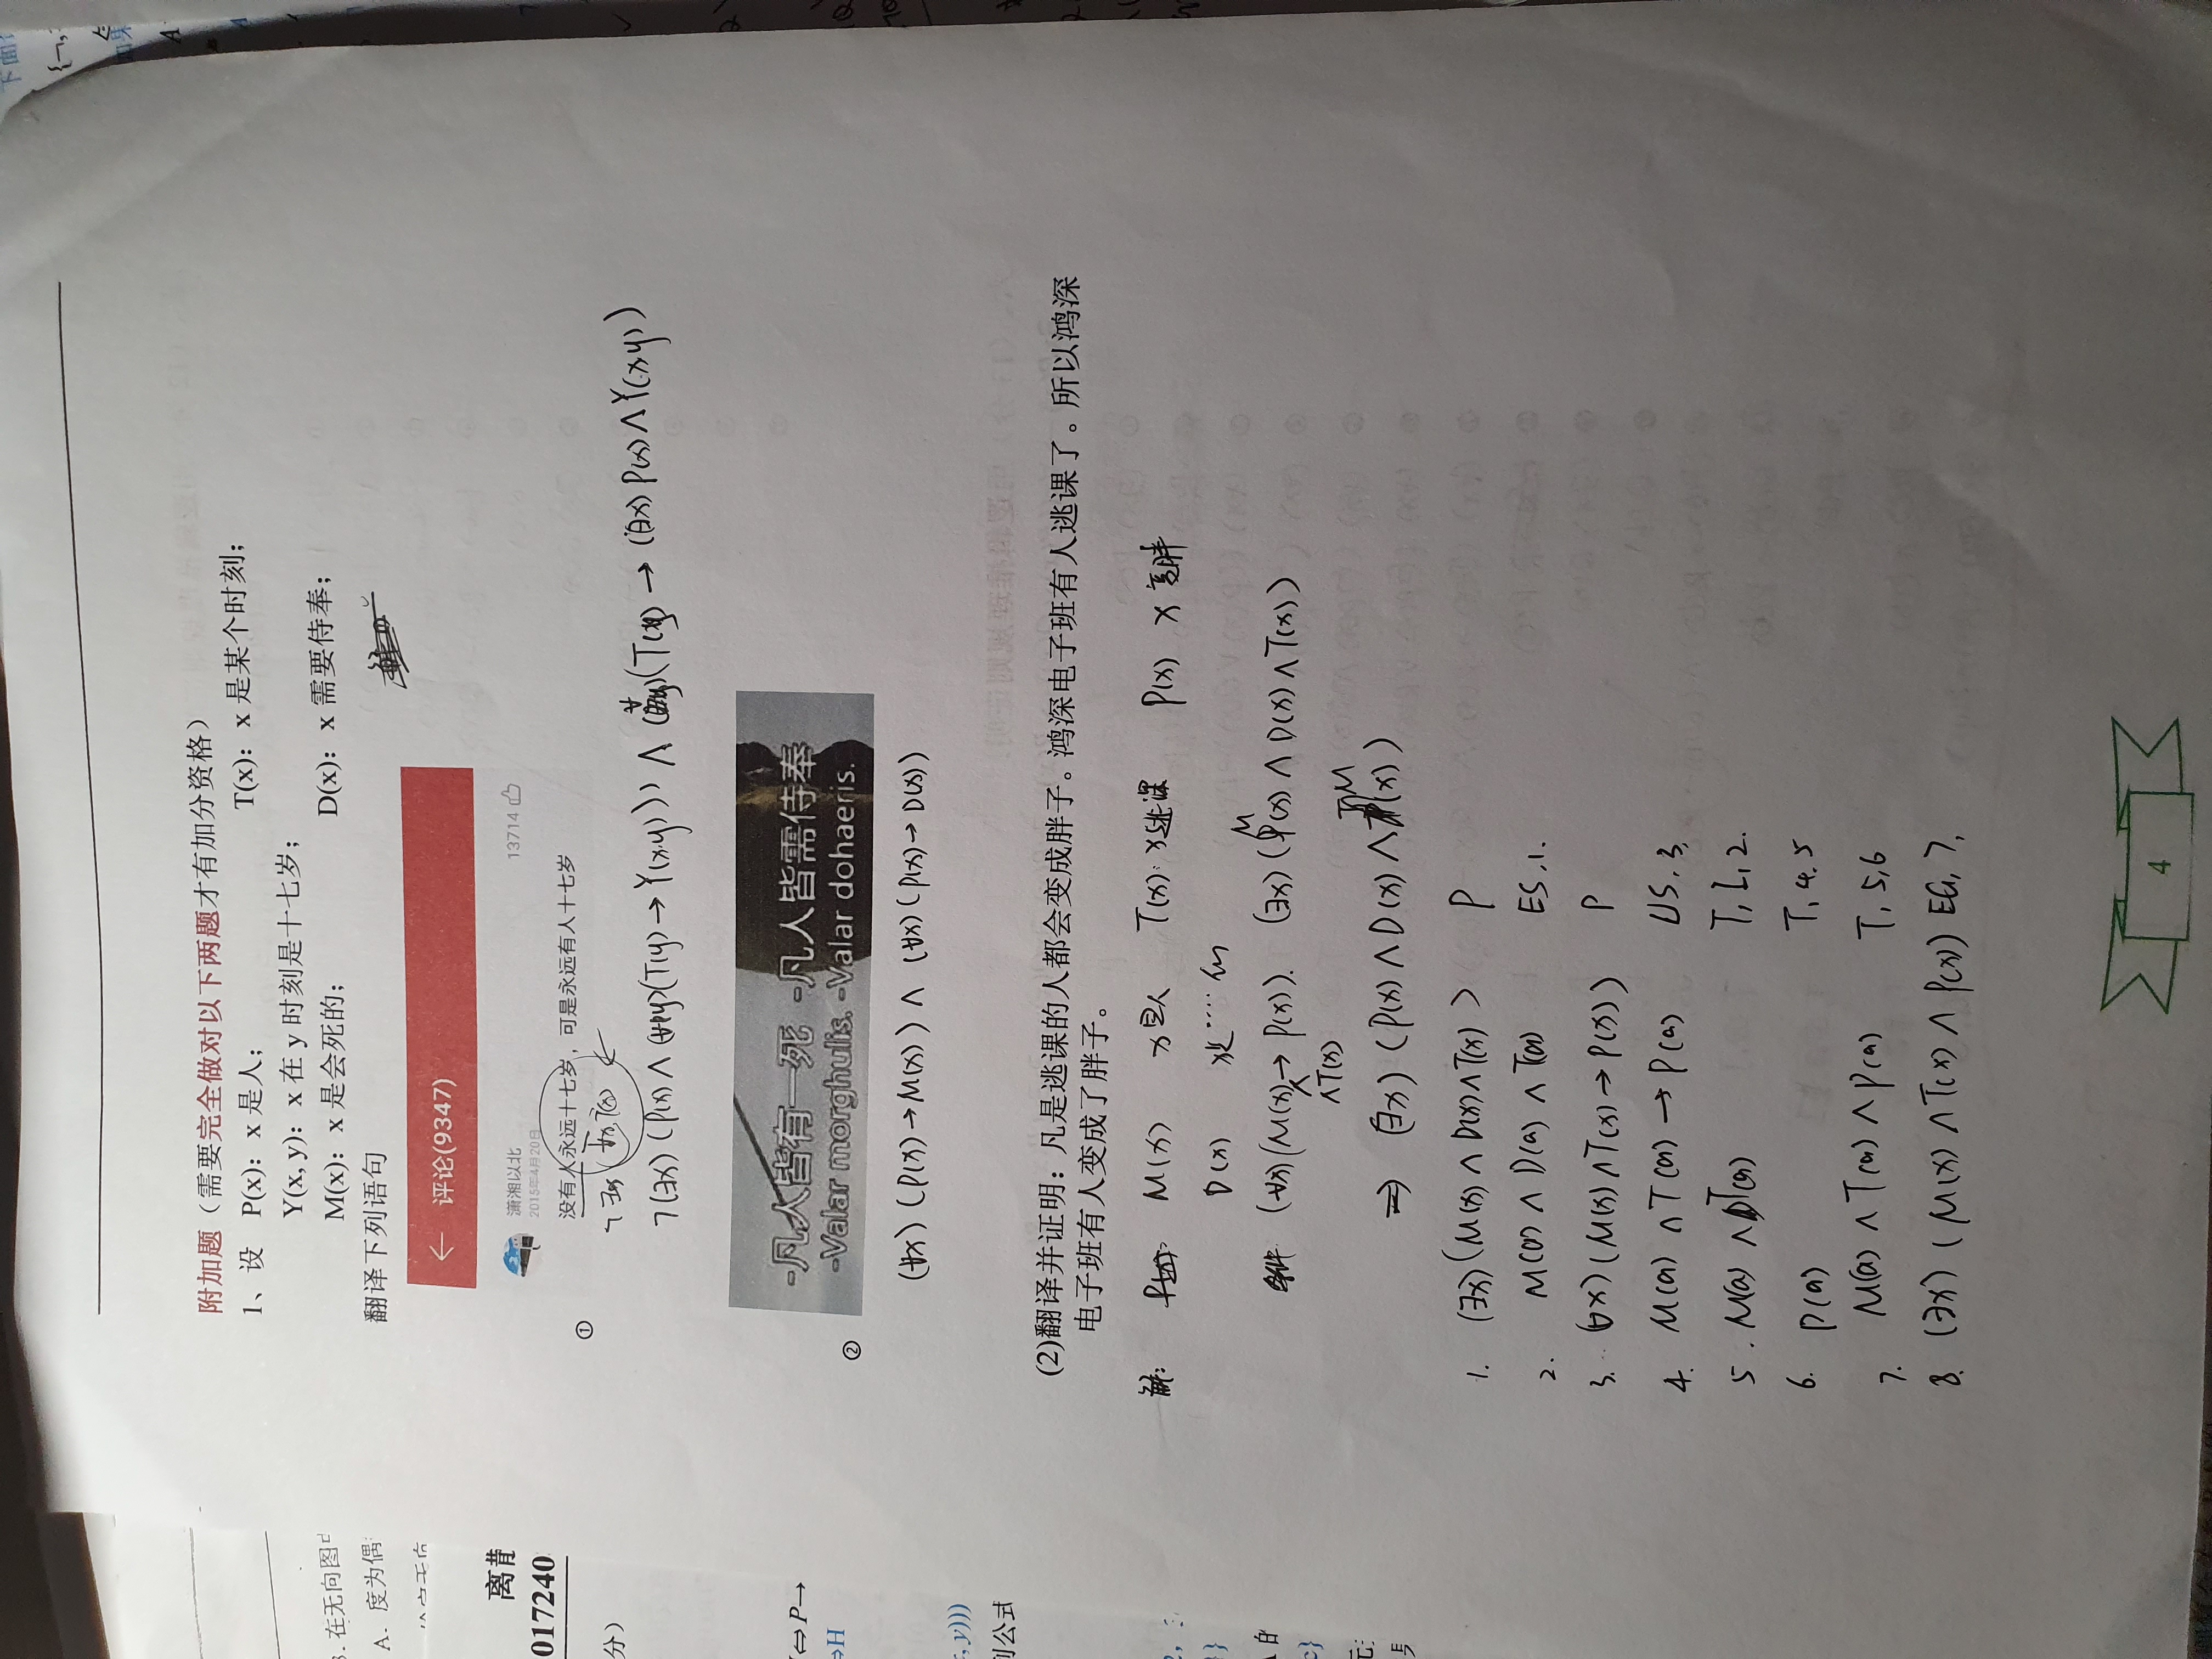 附加题（需要完全做对以下两题才有加分资格）
1、设 P(x)：x 是人； T(x)：x 是某个时刻；
Y(x, y)：x 在 y 时刻是十七岁；
M(x)：x 是会死的； D(x)：x 需要侍奉；
翻译下列语句
← 评论(9347)
潇湘以北 13714
2015年4月20日
① 没有人永远十七岁，可是永远有人十七岁
¬∃x (∀x, T(x)) ←
¬(∃x) (P(x) ∧ (∀y)(T(y) → Y(x,y))) ∧ (∀y)(T(y) → (∃x) P(x) ∧ Y(x,y))
-凡人皆有一死 -凡人皆需侍奉
② -Valar morghulis. -Valar dohaeris.
(∀x) (P(x) → M(x)) ∧ (∀x) (P(x) → D(x))
(2)翻译并证明：凡是逃课的人都会变成胖子。鸿深电子班有人逃课了。所以鸿深
电子班有人变成了胖子。
解: M(x) x是人 T(x): x逃课 P(x) x变胖
D(x) x是····的
条件 (∀x) (M(x) → P(x)). (∃x) (M(x) ∧ D(x) ∧ T(x))
∧T(x)
⇒ (∃x) (P(x) ∧ D(x) ∧ M(x))
1. (∃x) (M(x) ∧ D(x) ∧ T(x)) P
2. M(a) ∧ D(a) ∧ T(a) ES,1.
3. (∀x) (M(x) ∧ T(x) → P(x)) P
4. M(a) ∧ T(a) → P(a) US,3,
5. M(a) ∧ T(a) T,1,2.
6. P(a) T,4.5
7. M(a) ∧ T(a) ∧ P(a) T,5,6
8. (∃x) (M(x) ∧ T(x) ∧ P(x)) EG,7,
4
3. 在无向图中
A. 度为偶
离散
017240
分）
⇔ P→
⇔H
, y)))
列公式